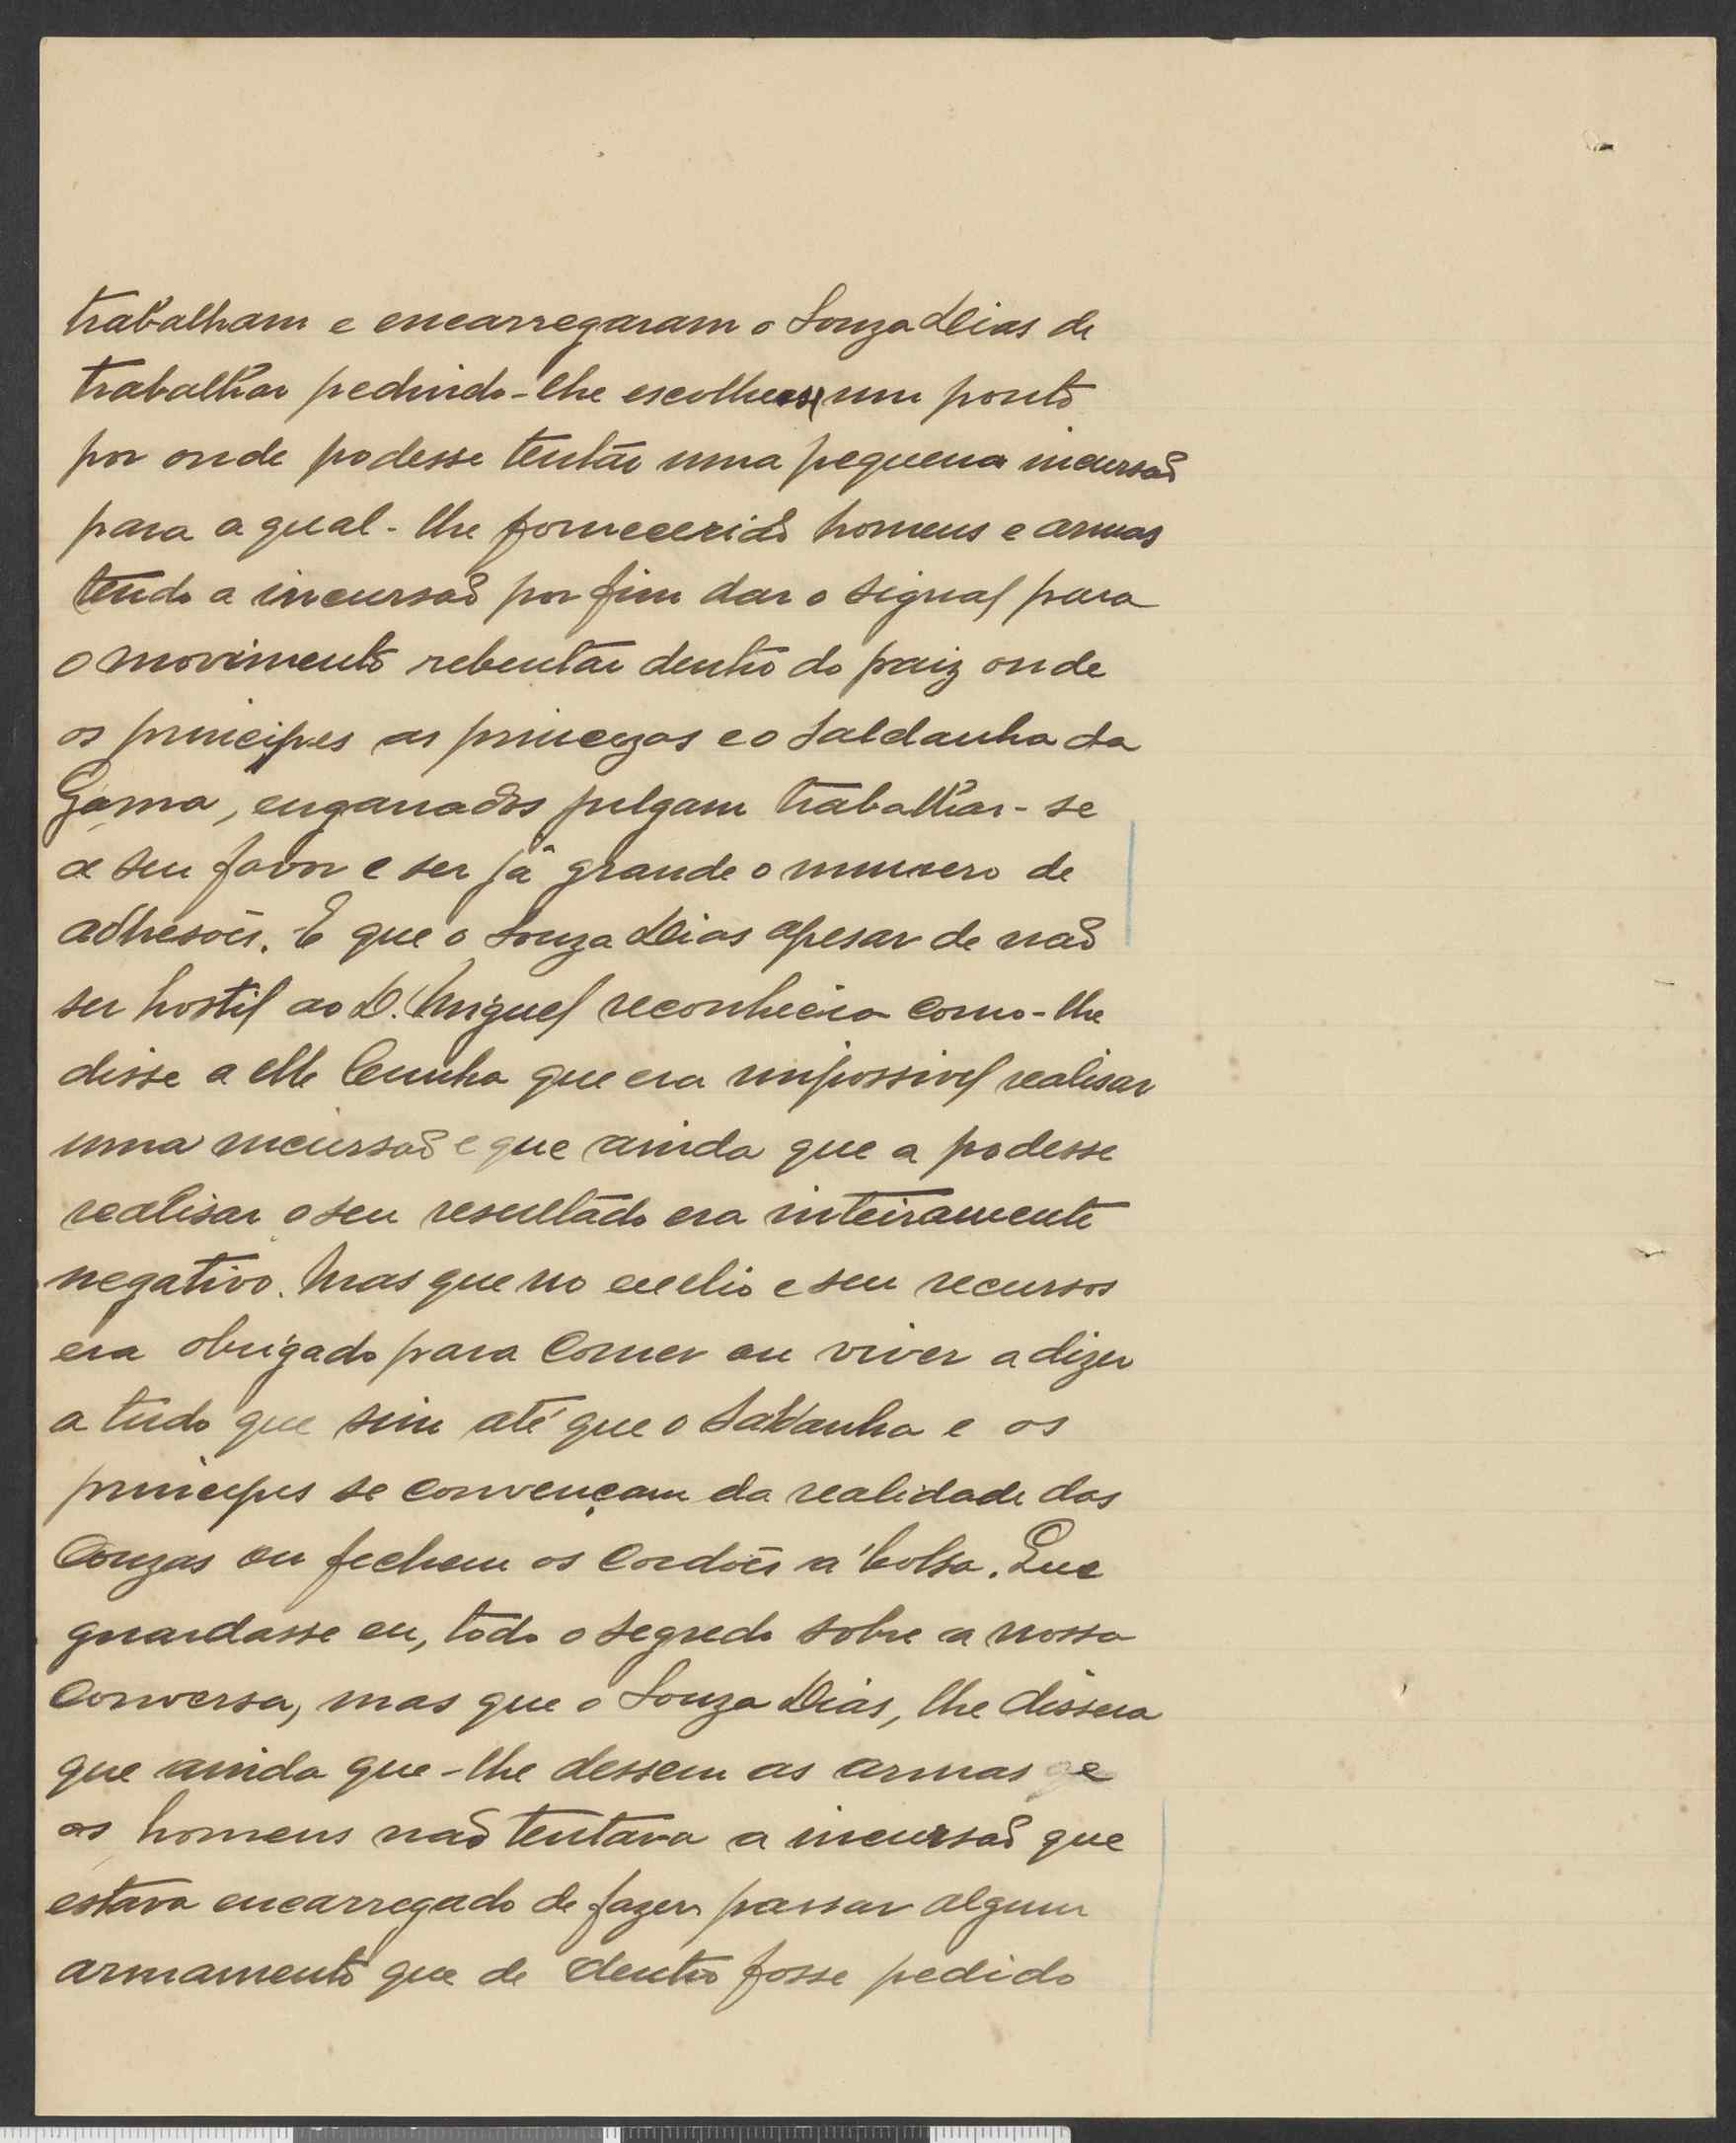 trabalham e encarregaram o Souza Dias de
trabalhar pedindo-lhe escolhesse um ponto
por onde podesse tentar uma pequena incursão
para a qual-lhe fornecerião homens e armas
tendo a incursão por fim dar o signal para
o movimento rebentar dentro do paiz onde
os principes as princezas e o Saldanha da
Gama, enganados julgam trabalhar-se
a seu favor e ser já grande o numero de
adhesões. E que o Souza Dias apesar de não
ser hostil ao D. Miguel reconhecia como-lhe
disse a elle Cunha que era impossivel realisar
uma incursão e que ainda que a podesse
realisar o seu resultado era inteiramente
negativo. Mas que no exelio e seu recursos
era obrigado para comer ou viver a dizer
a tudo que sim até que o Saldanha e os
principes se convençam da realidade das
Couzas ou fechem os cordões á bolsa. Que
guardasse eu, todo o segredo sobre a nossa
conversa, mas que o Souza Dias, lhe dissera
que ainda que-lhe dessem as armas e
os homens não tentava a incursão que
estava encarregado de fazer passar algum
armamento que de dentro fosse pedido